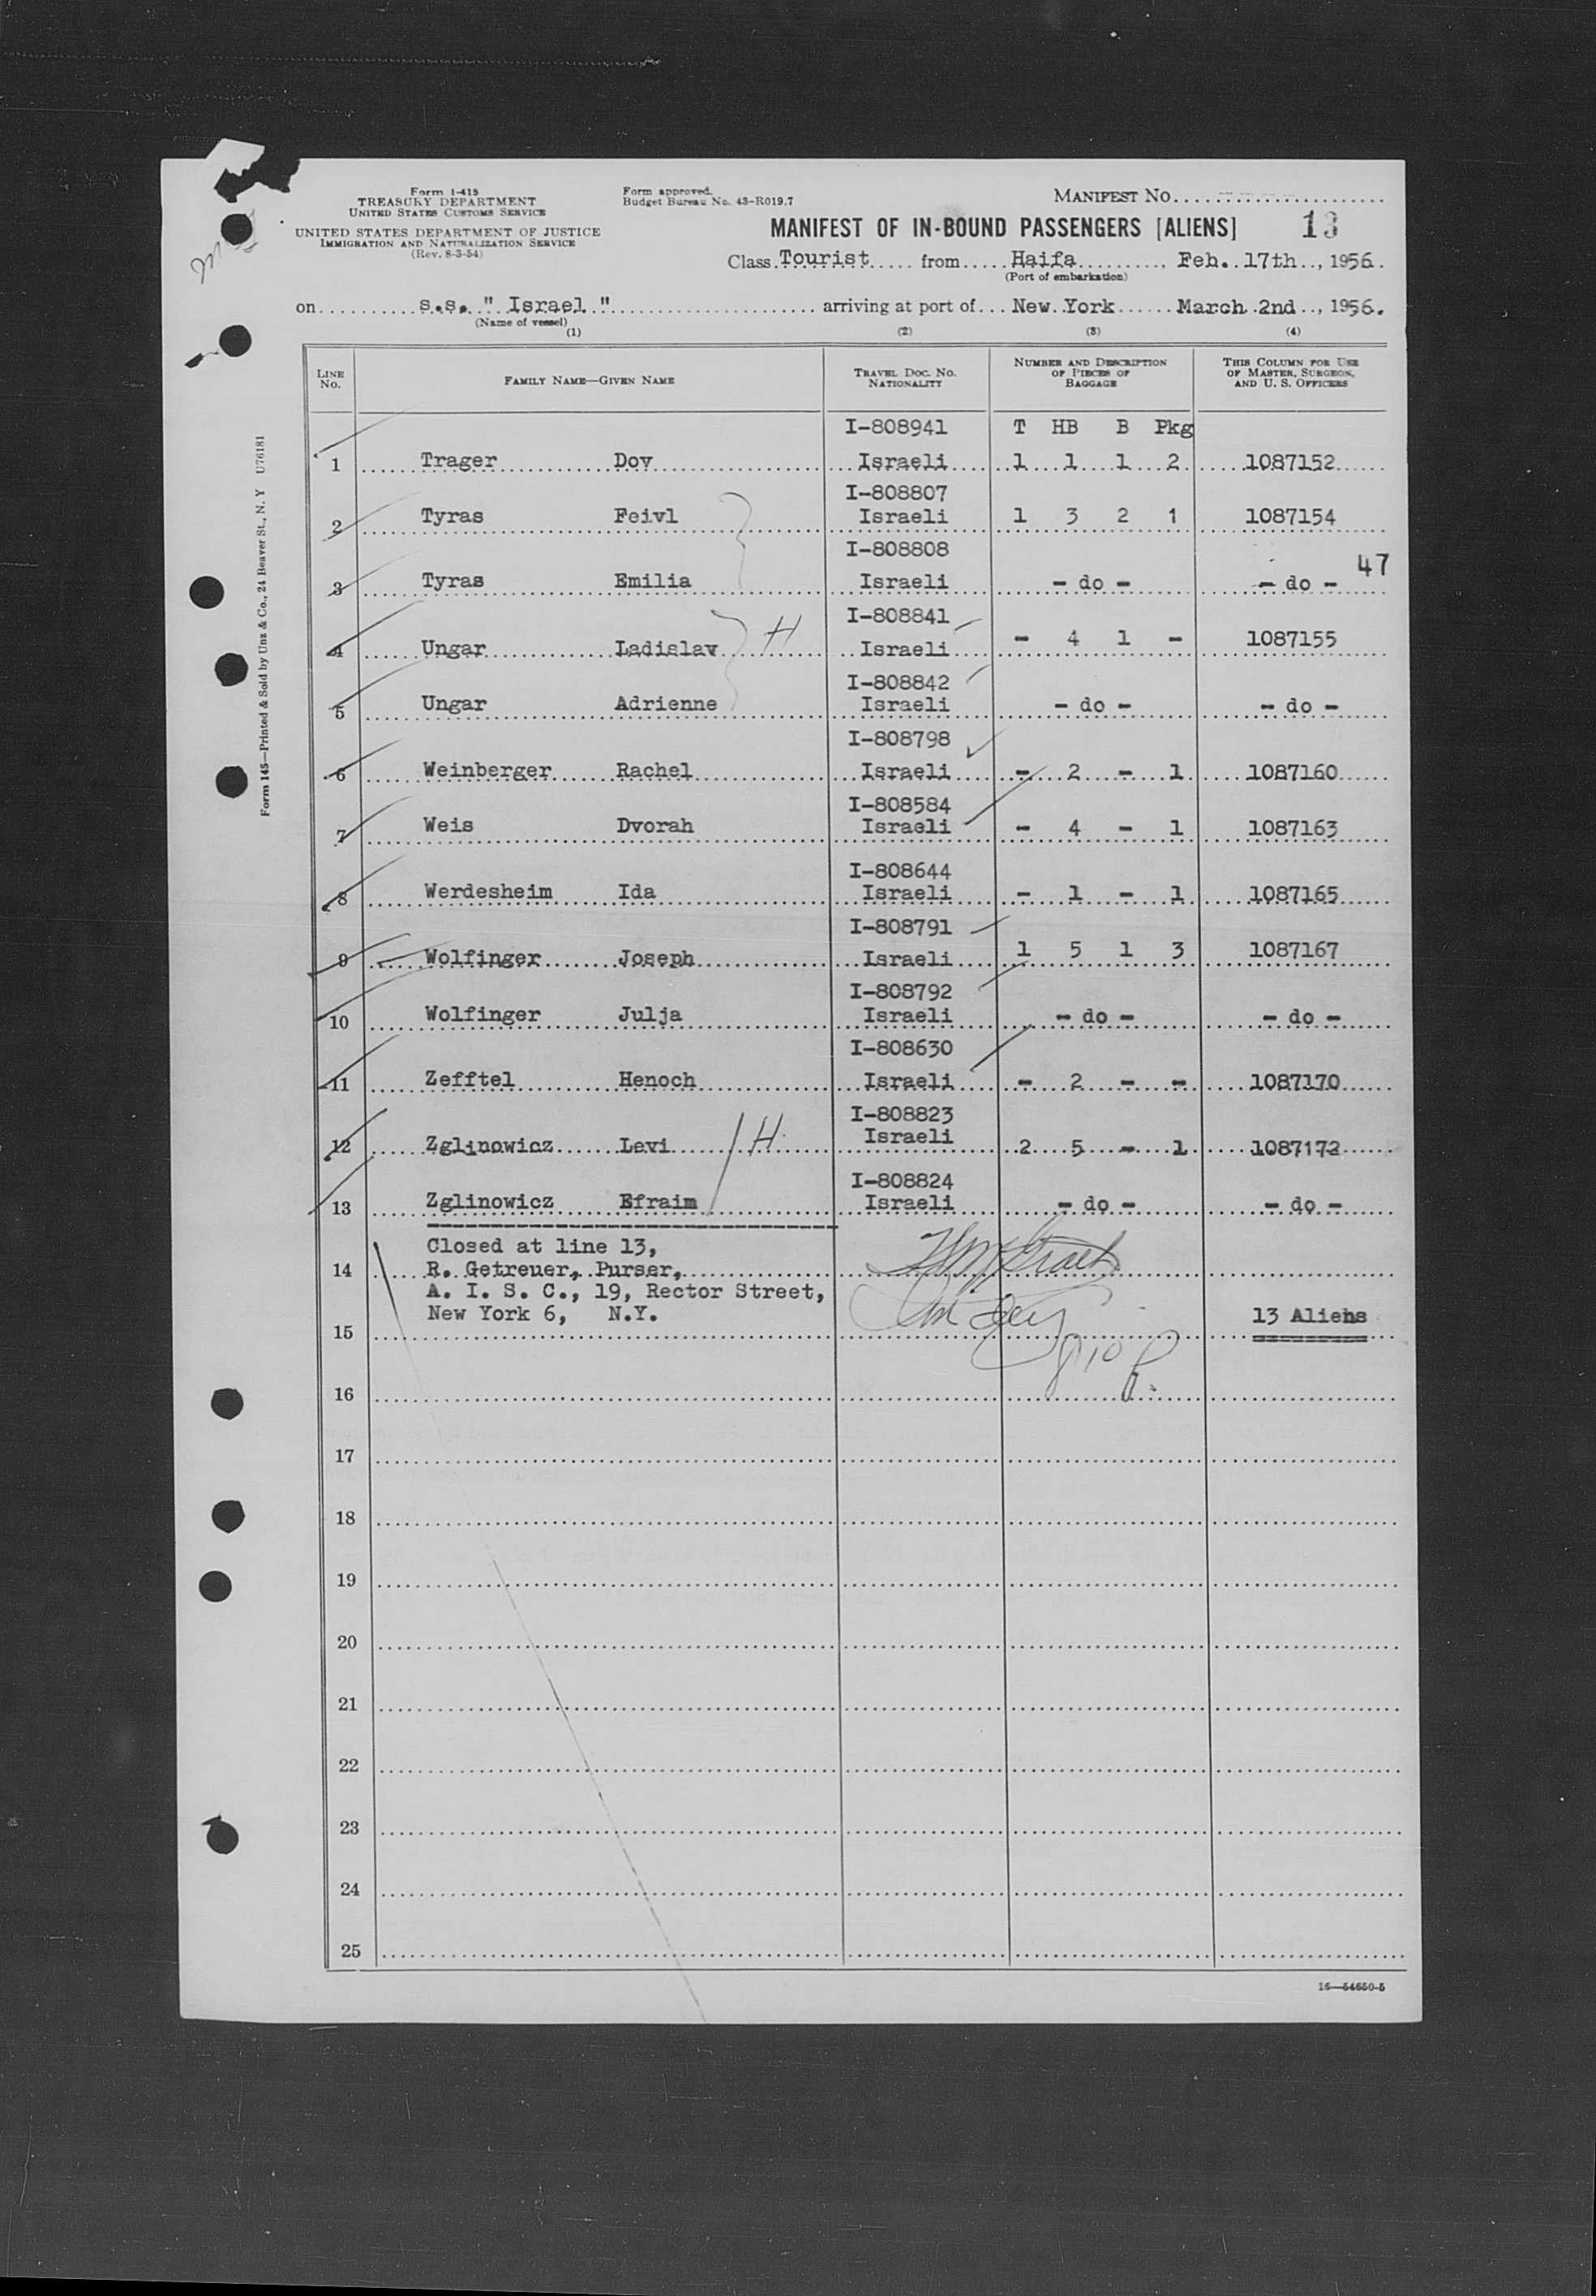 Form I-415
TREASURY DEPARTMENT
UNITED STATES CUSTOMS SERVICE
UNITED STATES DEPARTMENT OF JUSTICE
IMMIGRATION AND NATURALIZATION SERVICE
(Rev. 8-3-54)
Form approved.
Budget Bureau No. 43-R019.7
MANIFEST NO.
MANIFEST OF IN-BOUND PASSENGERS [ALIENS] 13
Class Tourist from Haifa, Feb. 17th, 1956.
(Port of embarkation)
on s.s. " Israel " arriving at port of New York March 2nd, 1956.
(Name of vessel)
(1) (2) (3) (4)
LINE NO. FAMILY NAME—GIVEN NAME TRAVEL DOC. NO. NATIONALITY NUMBER AND DESCRIPTION OF PIECES OF BAGGAGE THIS COLUMN FOR USE OF MASTER, SURGEON, AND U. S. OFFICERS
I-808941 T HB B Pkg
1 Trager Dov Israeli 1 1 1 2 1087152
I-808807
2 Tyras Feivl Israeli 1 3 2 1 1087154
I-808808 47
3 Tyras Emilia Israeli - do - - do -
I-808841
4 Ungar Ladislav H Israeli - 4 1 - 1087155
I-808842
5 Ungar Adrienne Israeli - do - - do -
I-808798
6 Weinberger Rachel Israeli - 2 - 1 1087160
I-808584
7 Weis Dvorah Israeli - 4 - 1 1087163
I-808644
8 Werdesheim Ida Israeli - 1 - 1 1087165
I-808791
9 Wolfinger Joseph Israeli 1 5 1 3 1087167
I-808792
10 Wolfinger Julja Israeli - do - - do -
I-808630
11 Zefftel Henoch Israeli - 2 - - 1087170
I-808823
12 Zglinowicz Levi H Israeli 2 5 - 1 1087172
I-808824
13 Zglinowicz Efraim Israeli - do - - do -
Closed at line 13,
14 R. Getreuer, Purser,
A. I. S. C., 19, Rector Street,
New York 6, N.Y. 13 Aliens
15
16
17
18
19
20
21
22
23
24
25
16—54650-5
Form 145—Printed & Sold by Unz & Co., 24 Beaver St., N. Y U76181